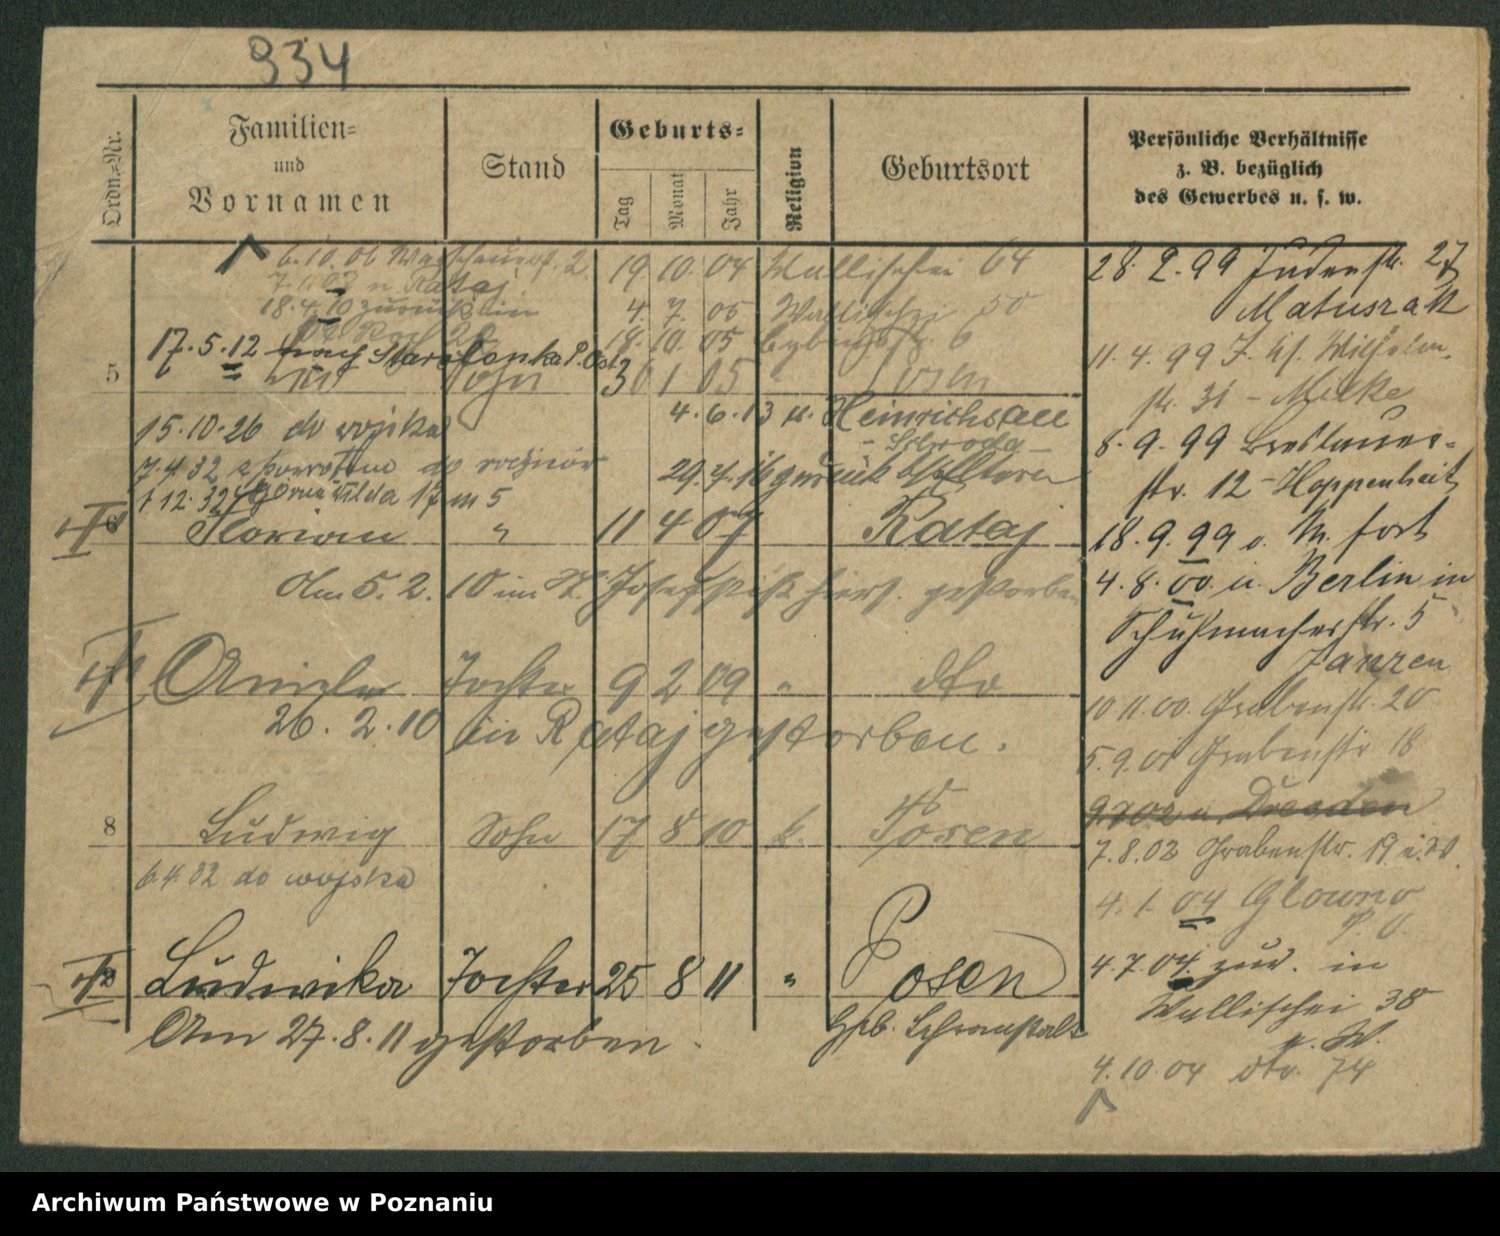 934
Ordn.-Nr.
Familien- und Vornamen
Stand
Geburts-
Tag Monat Jahr
Religion
Geburtsort
Persönliche Verhältnisse
z. B. bezüglich
des Gewerbes u. s. w.
6.10.06 2
19 10 04 Wallischei 64
7.1. n. Rataj
18.4.10 zurück in
4. 7. 05 Wallischei 50
18. 10. 05 6
17.5.12 nach Starolenka P. Ost
5 Sohn 30 1 05 " Posen
4.6.13 n. Heinrichsau
- Schroda -
15.10.26 do wojska
7.4.32 z powrotem do rodziców
29.4.16 zurück
1 12.32 Górna Wilda 17 m 5
6 Florian " 11 4 07 Rataj
Am 5.2.10 im St. Josefstift hier. gestorben
Tochter 9 2 09 " dto
26.2.10 in Rataj gestorben.
8 Ludwig Sohn 17 8 10 k. Posen
6.4.32 do wojska
Ludwika Tochter 25 8 11 " Posen
Am 27.8.11 gestorben.
Heb. Lehranstalt
28.2.99 Judenstr. 27
Matuszak
11.4.99 Wilhelm-
str. 31 - Milke
8.9.99 Breslauer-
str. 12 - Hoppenheit
18.9.99 fort
4.8.00. n. Berlin in
Schuhmacherstr. 5
Janzen
10.11.00. Grabenstr. 20
5.9.01 Grabenstr 18
n. Dresden
7.8.02 Grabenstr. 19 i. 20.
4.1.04 Glowno
P. O.
4.7.04. zur. in
Wallischei 38
4.10.04 dto. 74